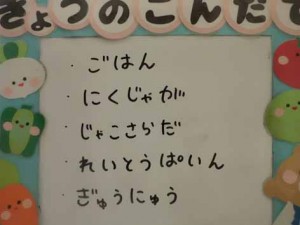 きょうのこんだて
・ごはん
・にくじゃが
・じゃこさらだ
・れいとうぱいん
・ぎゅうにゅう